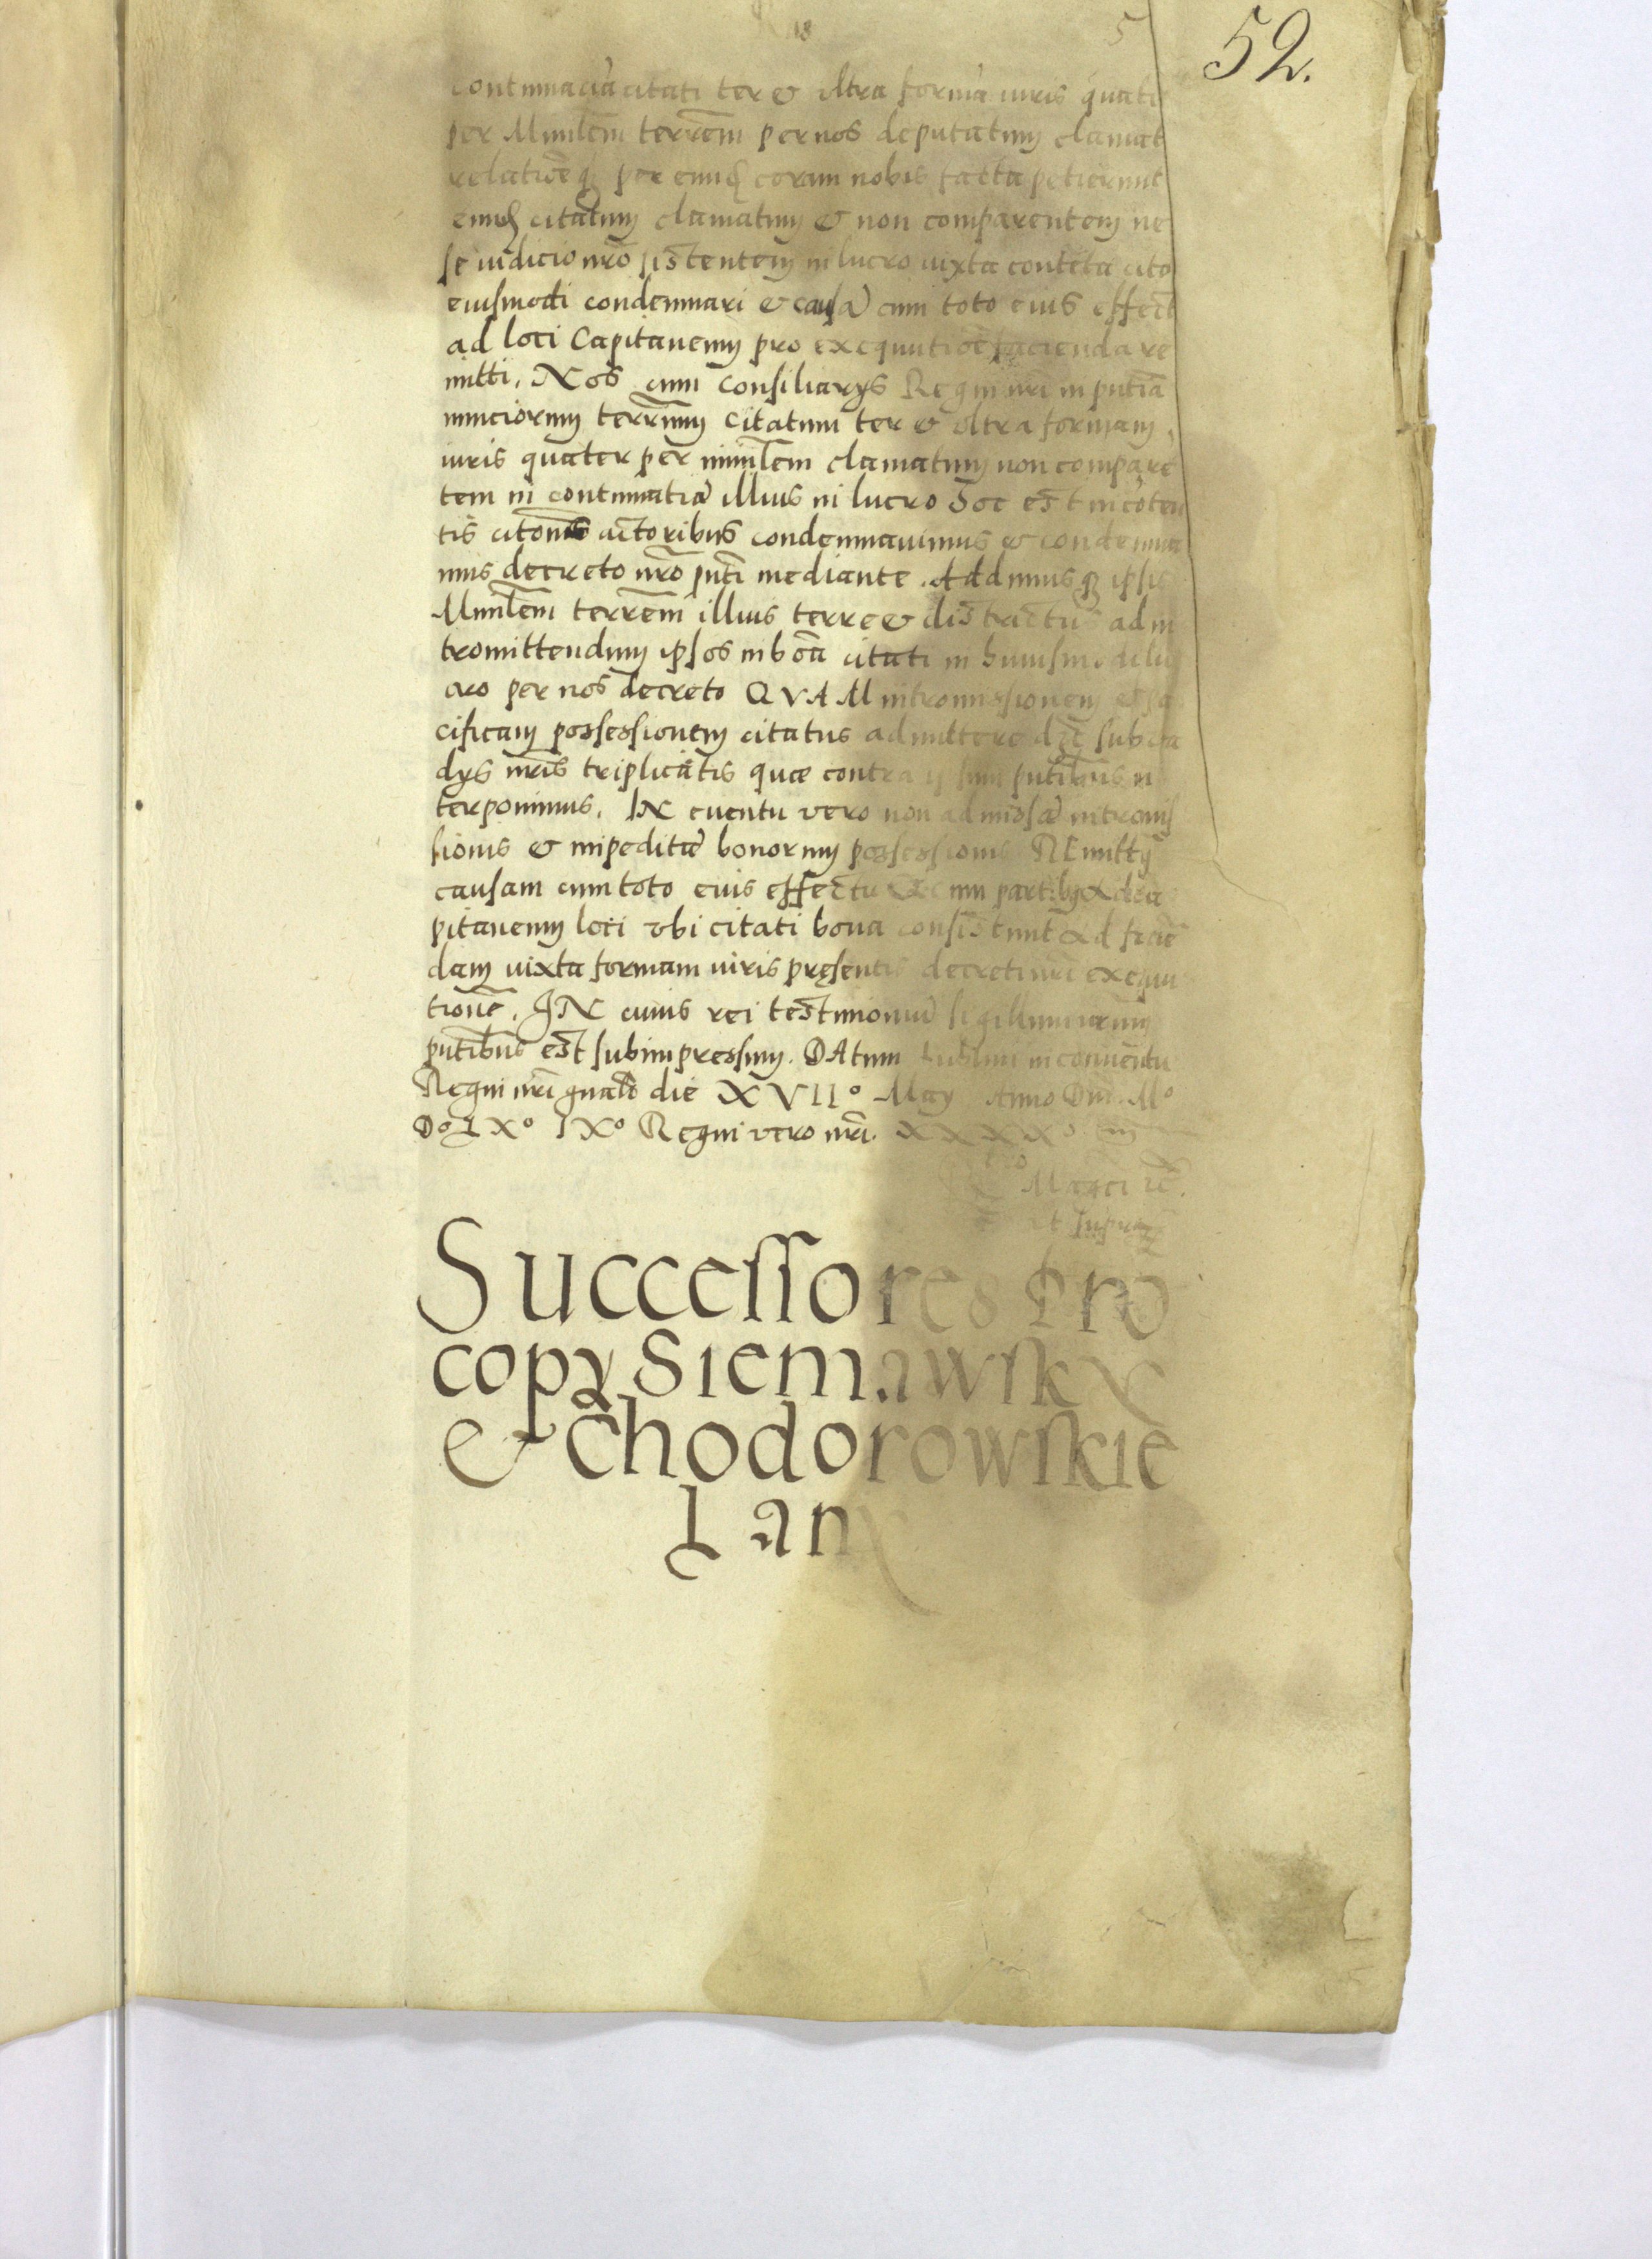 18 5
52.
contumaciā citati ter & vltra formā iuris quati
per Minrlem terrēm per nos deputatum clamat
relationēq per eund coram nobis facta petierunt
eund citatum clamatum & non comparentem ne
se iudicio nrō sistentem in lucro iuxta contēta cito
eiusmodi condemnari & causā cum toto eius effect
ad loci Capitaneum pro exequutiōe facienda re
mitti. Nos cum consiliarys Regni nri in pntia
nunciorum terrarum citatum ter & vltra formam
iuris quater per minrlem clamatum non comparē
tem in contumatiā illius in lucro hoc est in cōten
tis citonis actoribus condemnauimus & condemna
mus decreto nrō pnti mediante. Addimusq ipsis
Minrlem terrēm illius terre & districtus ad in
tromittendum ipsos in bōa citati in huiusmodi lu
cro per nos decreto QVAM intromissionem et pa
cificam possessionem citatus admittere dēt sub va
dys nris triplicatis quæ contra ipsum pntibus in
terponimus. IN euentu vero non admissæ intromis
sionis & impeditæ bonorum possessionis REmitty
causam cum toto eius effectu & cum partibus Ad ca
pitaneum loci vbi citati bona consistunt Ad faciē
dam iuxta formam iuris pręsentis decreti nri exequu
tionē. IN cuius rei testimoniū sigillum nrum
pntibus est subimpressum. DAtum Lublini in conuentu
Regni nri gnali die XVII° May Anno Dni. M°
D° LX° IX° Regni vero nri. XXXX°
Magci
vt supra
Successores Pro
copy Siemawsky
& Chodorowskie
Lany